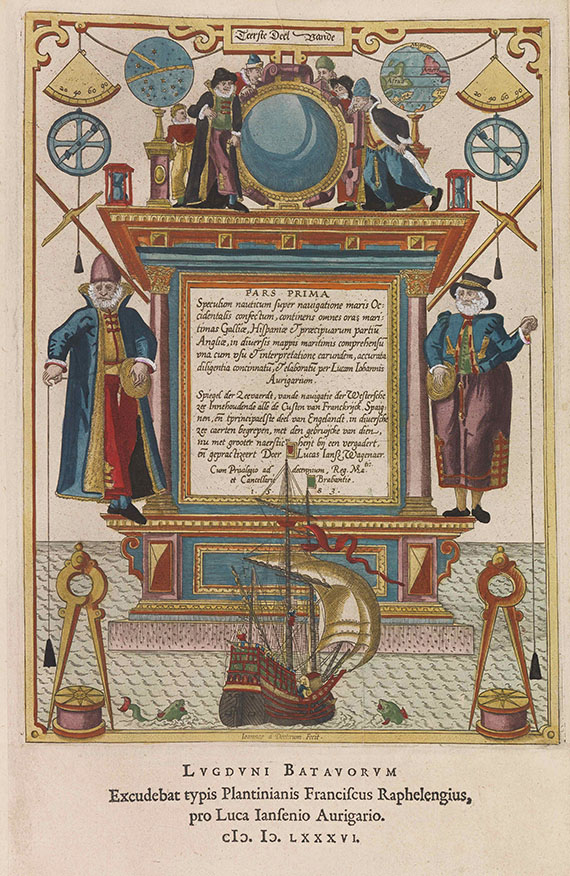 Teerste Deel Vande
20 40 60 90
20 40 60 90
PARS PRIMA
Speculum nauticum super navigatione maris Oc-
cidentalis confectum, continens omnes oras mari-
timas Galliæ, Hispaniæ & præcipuarum partiũ
Angliæ, in diversis mappis maritimis comprehensũ
una cum usu & interpretatione earundem, accurata
diligentia concinnatũ, & elaboratũ per Lucam Iohannis
Aurigarium.
Spiegel der Zeevaerdt, vande navigatie der Westersche
zee Innehoudende alle de Custen van Franckrijck Spaig-
nen, eñ tprincipaelste deel van Engelandt, in diversche
zee caerten begrepen, met den gebruijcke van dien,
nu met grooter naersticheyt bij een vergadert,
eñ gepractizeert Door Lucas Ianſz Wagenaer.
Cum Privilegio ad decennium, Reg. Ma.
et Cancellarie Brabantie.
1583.
Ioannes à Doetecum Fecit.
LVGDVNI BATAVORVM
Excudebat typis Plantinianis Franciſcus Raphelengius,
pro Luca Ianſenio Aurigario.
cIↄ. Iↄ. LXXXVI.